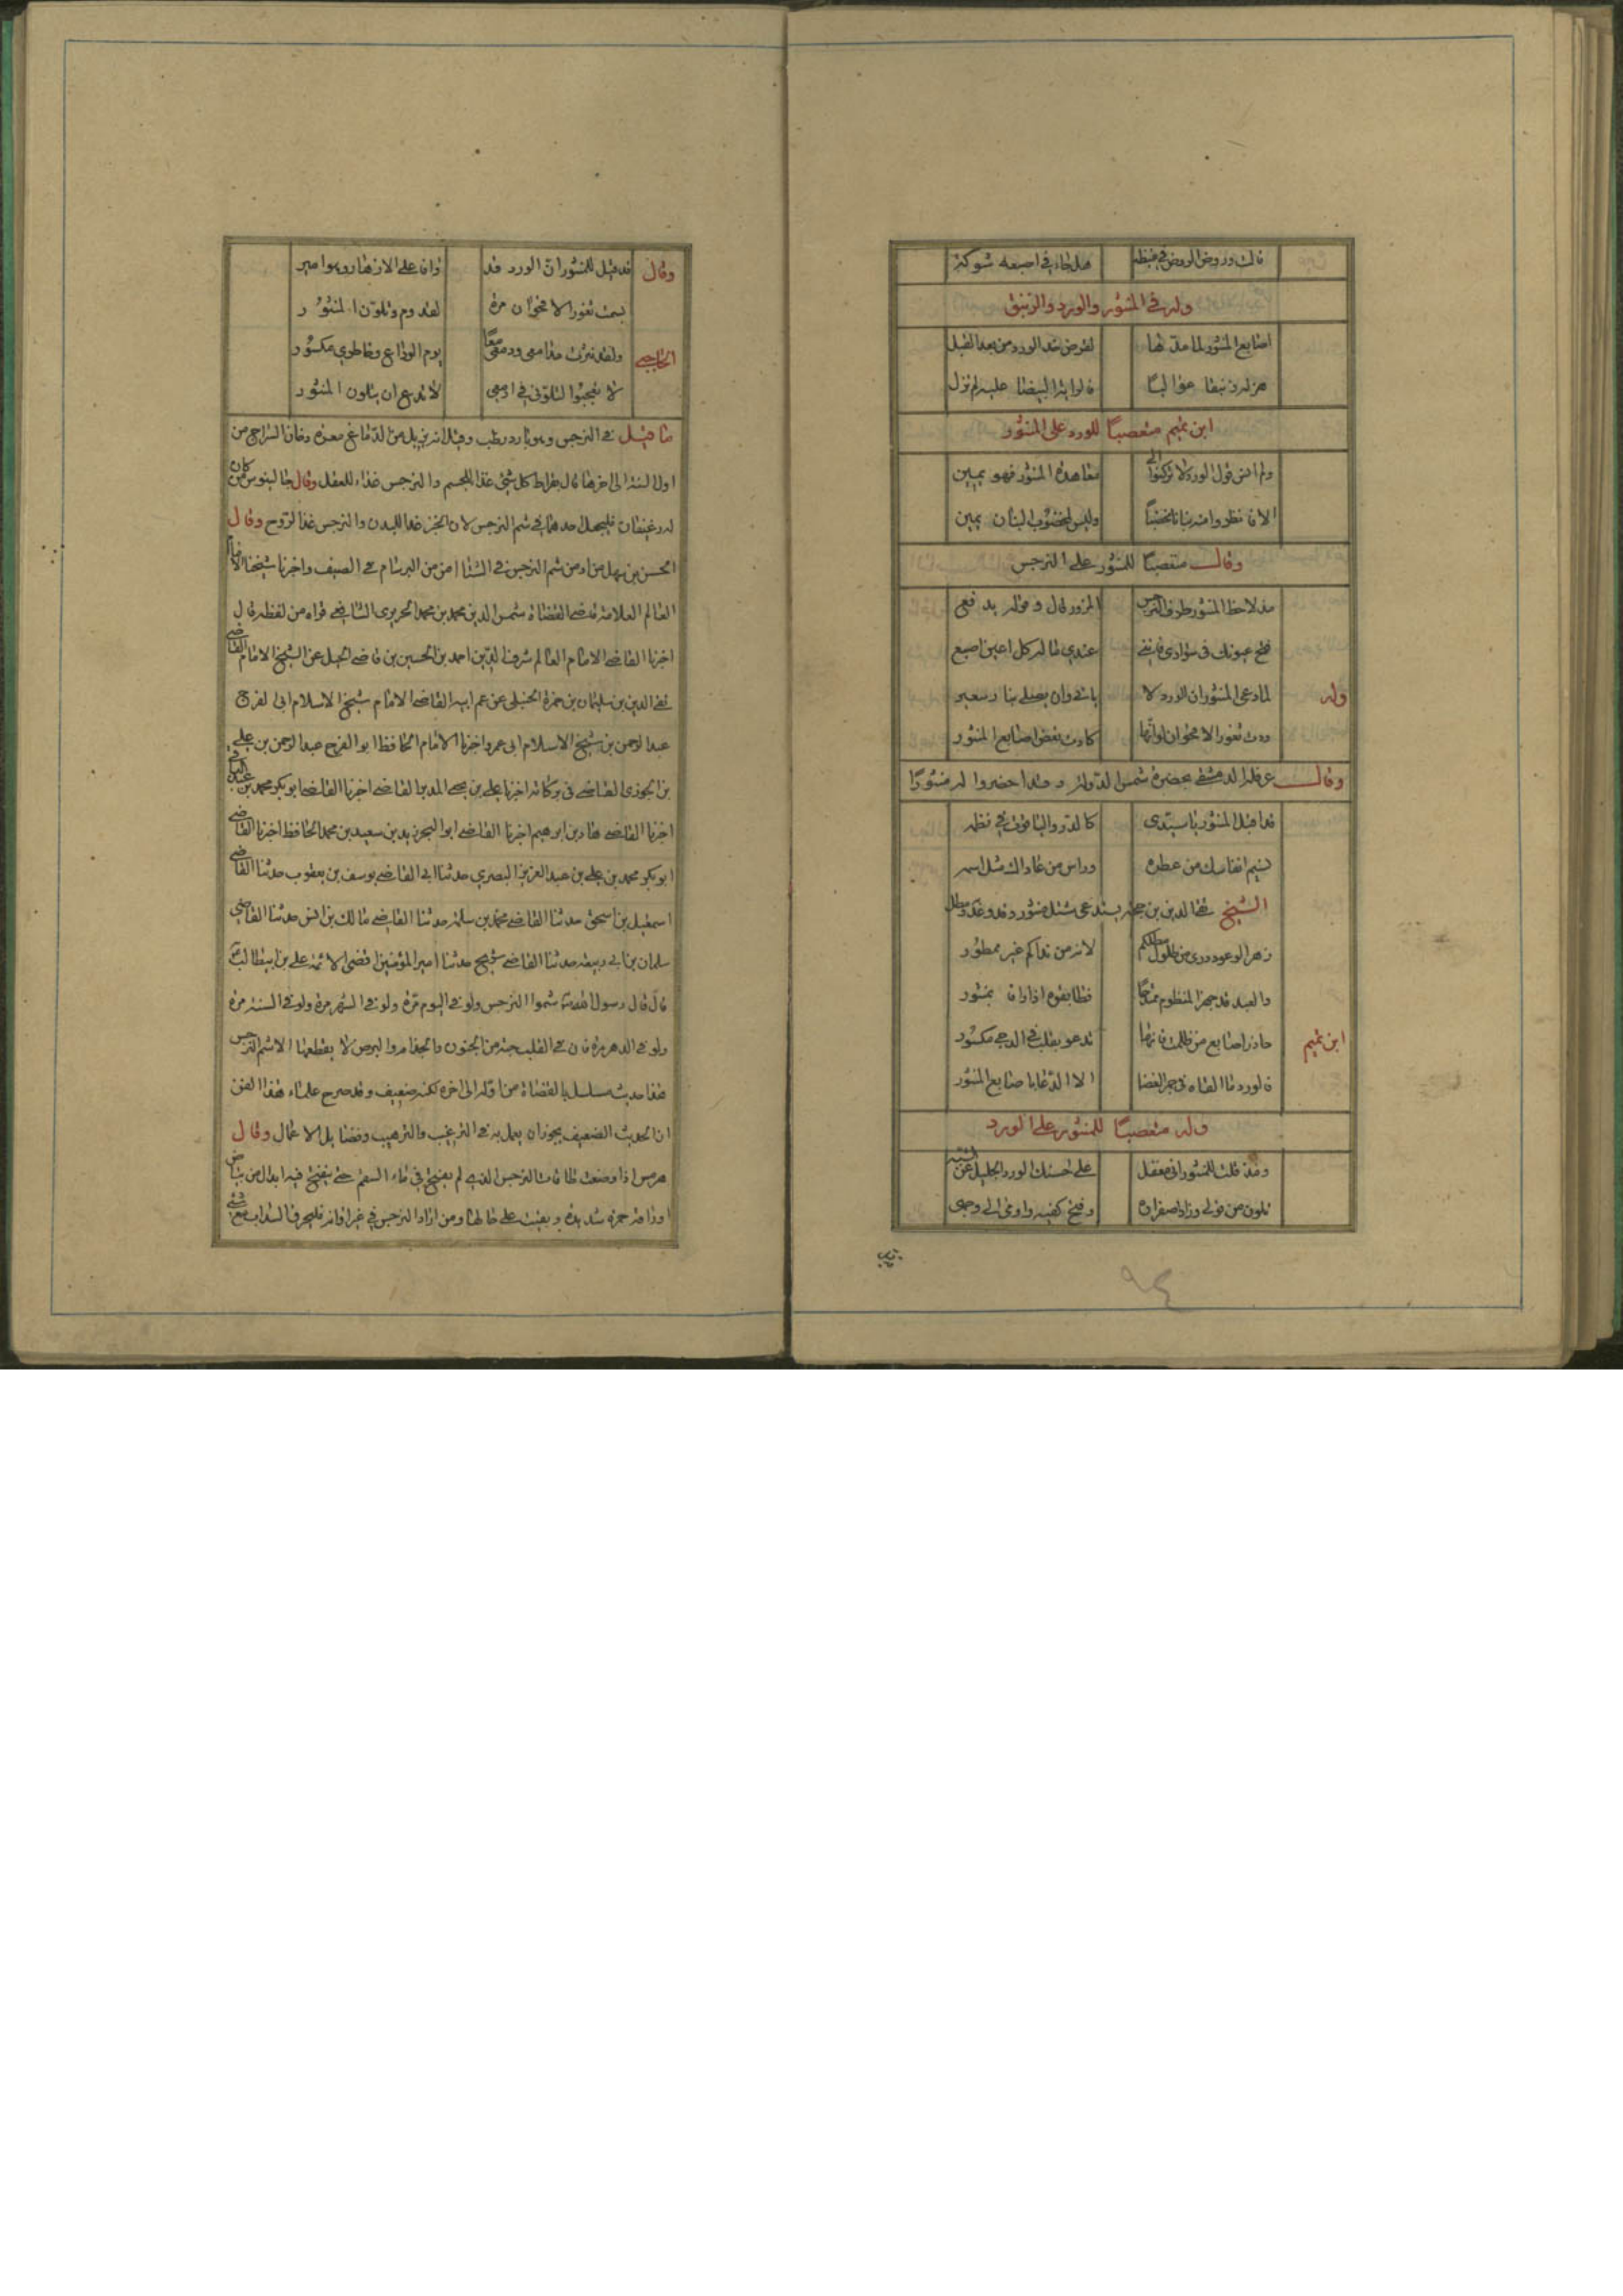 قالت وروض الورد في غيظه هل جاء في اصبعه شوكة
وله في المنثور والورد والزنبق
اصابع المنثور لما مدّ لها لقرص خد الورد من بعد القبل
هز له زنبقا عواليا قالوا
ابن تميم متعصبًا للورد على المنثور
ولم انس قول الورد لا تركنوا الى معاهدة المنثور فهو يمين
الا فانظروا منه بنانا مخضبًا وليس لمخضوب البنان يمين
وقال متعصبًا للمنثور على النرجس
مذ لاحظ المنثور طرف النرجس المزور قال وقوله يدفعي
فتح عيونك في سوادي فانني عندي قباله كل اعين اصبع
وله لما دعى المنثور ان الورد لا ياتي وان يصلى بنار سعير
ودت ثغور الاقحوان لو انها كادت تعض اصابع المنثور
وقال عرقلة الدمشقي بحضرة شمس الدولة وقد احضروا له منثورًا
قد اقبل المنثور يا سيدي كالدر والياقوت في نظمه
نسيم انفاسك من عطره وراس من عاداك مثل اسمه
الشيخ تقي الدين بن حجة يستدعي شتل منثور وقد وعد ومطل
زهر الوعود ذوى من طول مطلكم لانه من نداكم غير ممطور
والعبد قد جهز المنظوم ممتدحًا فطابقوه اذا وافى بمنثور
ابن تميم حاذر اصابع من ظلمت فانها تدعو بقلب في الدجى مكسور
فالورد ما القاه في جمر الغضا الا الدعا باصابع المنثور
وله متعصبًا للمنثور على الورد
ومذ قلت للمنثور اني مفضل على حسنك الورد الجليل عن الشبه
تلون من قولي وزاد اصفراره وفتح كفيه واومى الى وجهي
٩٤
وقال قد قيل للمنثور ان الورد قد وافا على الازهار وهو امير
بسمت ثغور الاقحوان مسرة لقدوم وتلون المنثور
الحاجبي ولقد نثرت مدامعي ودمي معًا يوم الوداع وخاطري مكسور
لا تعجبوا لتلوني في ادمعي لا بدع ان يتلون المنثور
ما قيل في النرجس وهو بارد رطب وقيل انه يزيل من الدماغ وفان السراج من
اول السنة الى اخرها قال بقراط كل شئ غذا للجسم والنرجس غذاء للعقل وقال جالينوس من كان
له رغيفان فليجعل احدهما في ثمن النرجس لان الخبز غذا للبدن والنرجس غذا للروح وقال
الحسن بن سهل من ادمن شم النرجس في الشتا امن من البرسام في الصيف واخبرنا شيخنا الامام
العالم العلامة قاضي القضاة شمس الدين محمد بن محمد الحريري الشافعي قراة من لفظه قال
اخبرنا القاضي الامام العالم شرف الدين احمد بن الحسين بن قاضي الجبل عن الشيخ الامام القاضي
تقي الدين بن سليمان بن حمزة الحنبلي عن عم ابيه القاضي الامام شيخ الاسلام ابي الفرج
عبد الرحمن بن شيخ الاسلام ابي عمر واخبرنا الامام الحافظ ابو الفرج عبد الرحمن بن علي
بن الجوزي القاضي في اخبرنا علي بن يحيى القاضي اخبرنا القاضي ابو بكر محمد بن عبد الباقي
اخبرنا القاضي هناد بن ابرهيم اخبرنا القاضي ابو سعيد بن محمد الحافظ اخبرنا القاضي
ابو بكر محمد بن علي بن عبد العزيز البصري حدثنا ابي القاضي يوسف بن يعقوب حدثنا القاضي
اسمعيل بن اسحق حدثنا القاضي محمد بن سلمة حدثنا القاضي مالك بن انس حدثنا القاضي
سلمان بن ابي ربيعة حدثنا القاضي شريح حدثنا امير المؤمنين اقضى الائمة علي بن ابيطالب
قال قال رسول الله شموا النرجس ولو في اليوم مرة ولو في الشهر مرة ولو في السنة مرة
ولو في الدهر مرة فان في القلب حبة من الجنون والجذام والبرص لا يقطعها الا شم النرجس
هذا حديث مسلسل بالقضاة من اوله الى اخره لكنه ضعيف وقد صرح علماء هذا الفن
ان الحديث الضعيف يجوز ان يعمل به في الترغيب والترهيب وفضايل الاعمال وقال
هرمس اذا وضعت طاقات النرجس الذي لم يفتح في ماء السقم حتى يفتح فيه ابدل من بياض
اوراقه حمرة شديدة وبقيت على حالها ومن اراد النرجس في غير اوانه فليحرق السذاب مع شئ